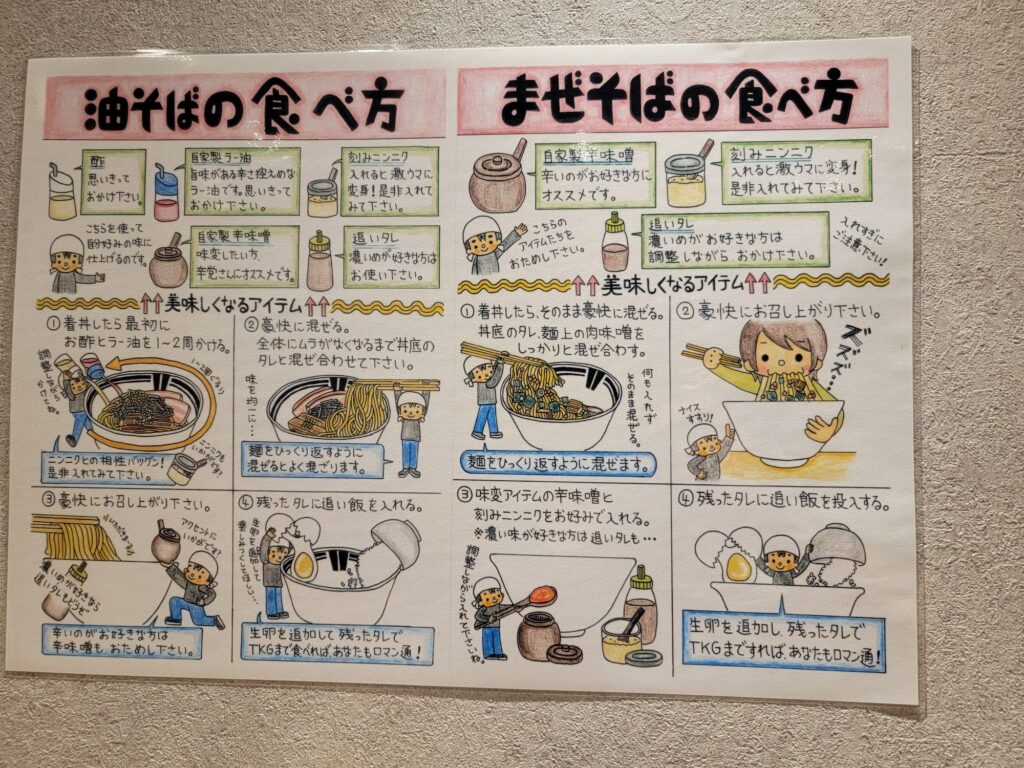 油そばの食べ方
酢
思いきって
おかけ下さい。
自家製ラー油
旨味がある辛さ控えめな
ラー油です。思いきって
おかけ下さい。
刻みニンニク
入れると激ウマに
変身!是非入れて
みて下さい。
こちらを使って
自分好みの味に
仕上げるのです。
自家製辛味噌
味変したい方、
辛党さんにオススメです。
追いタレ
濃いめが好きな方は
お使い下さい。
↑↑美味しくなるアイテム↑↑
①着丼したら最初に
お酢とラー油を1~2周かける。
調整しながら
かけてね。
1~2周ぐるり
ニンニクも
いかがです?
ニンニクとの相性バツグン!
是非入れてみて下さい。
②豪快に混ぜる。
全体にムラがなくなるまで丼底の
タレと混ぜ合わせて下さい。
味を均一に…
麺をひっくり返すように
混ぜるとよく混ざります。
③豪快にお召し上がり下さい。
アクセントに
いかがです?
濃いめが好きなら
追いタレもどうぞ
辛いのがお好きな方は
辛味噌も、おためし下さい。
④残ったタレに追い飯を入れる。
生卵を追加して
楽しみつくしてほしい…
生卵を追加して残ったタレで
TKGまで食べれば、あなたもロマン通!
まぜそばの食べ方
自家製辛味噌
辛いのがお好きな方に
オススメです。
刻みニンニク
入れると激ウマに変身!
是非入れてみて下さい。
こちらの
アイテムたちを
おためし下さい。
追いタレ
濃いめがお好きな方は
調整しながらおかけ下さい。
入れすぎに
ご注意下さい!
↑↑美味しくなるアイテム↑↑
①着丼したら、そのまま豪快に混ぜる。
丼底のタレ、麺上の肉味噌を
しっかりと混ぜ合わす。
何も入れず
そのまま混ぜる。
麺をひっくり返すように混ぜます。
②豪快にお召し上がり下さい。
ズズズ…
ナイス
すすり!
③味変アイテムの辛味噌と
刻みニンニクをお好みで入れる。
※濃い味が好きな方は追いタレも…
調整しながら入れて下さいね。
④残ったタレに追い飯を投入する。
生卵を追加し、残ったタレで
TKGまですれば、あなたもロマン通!